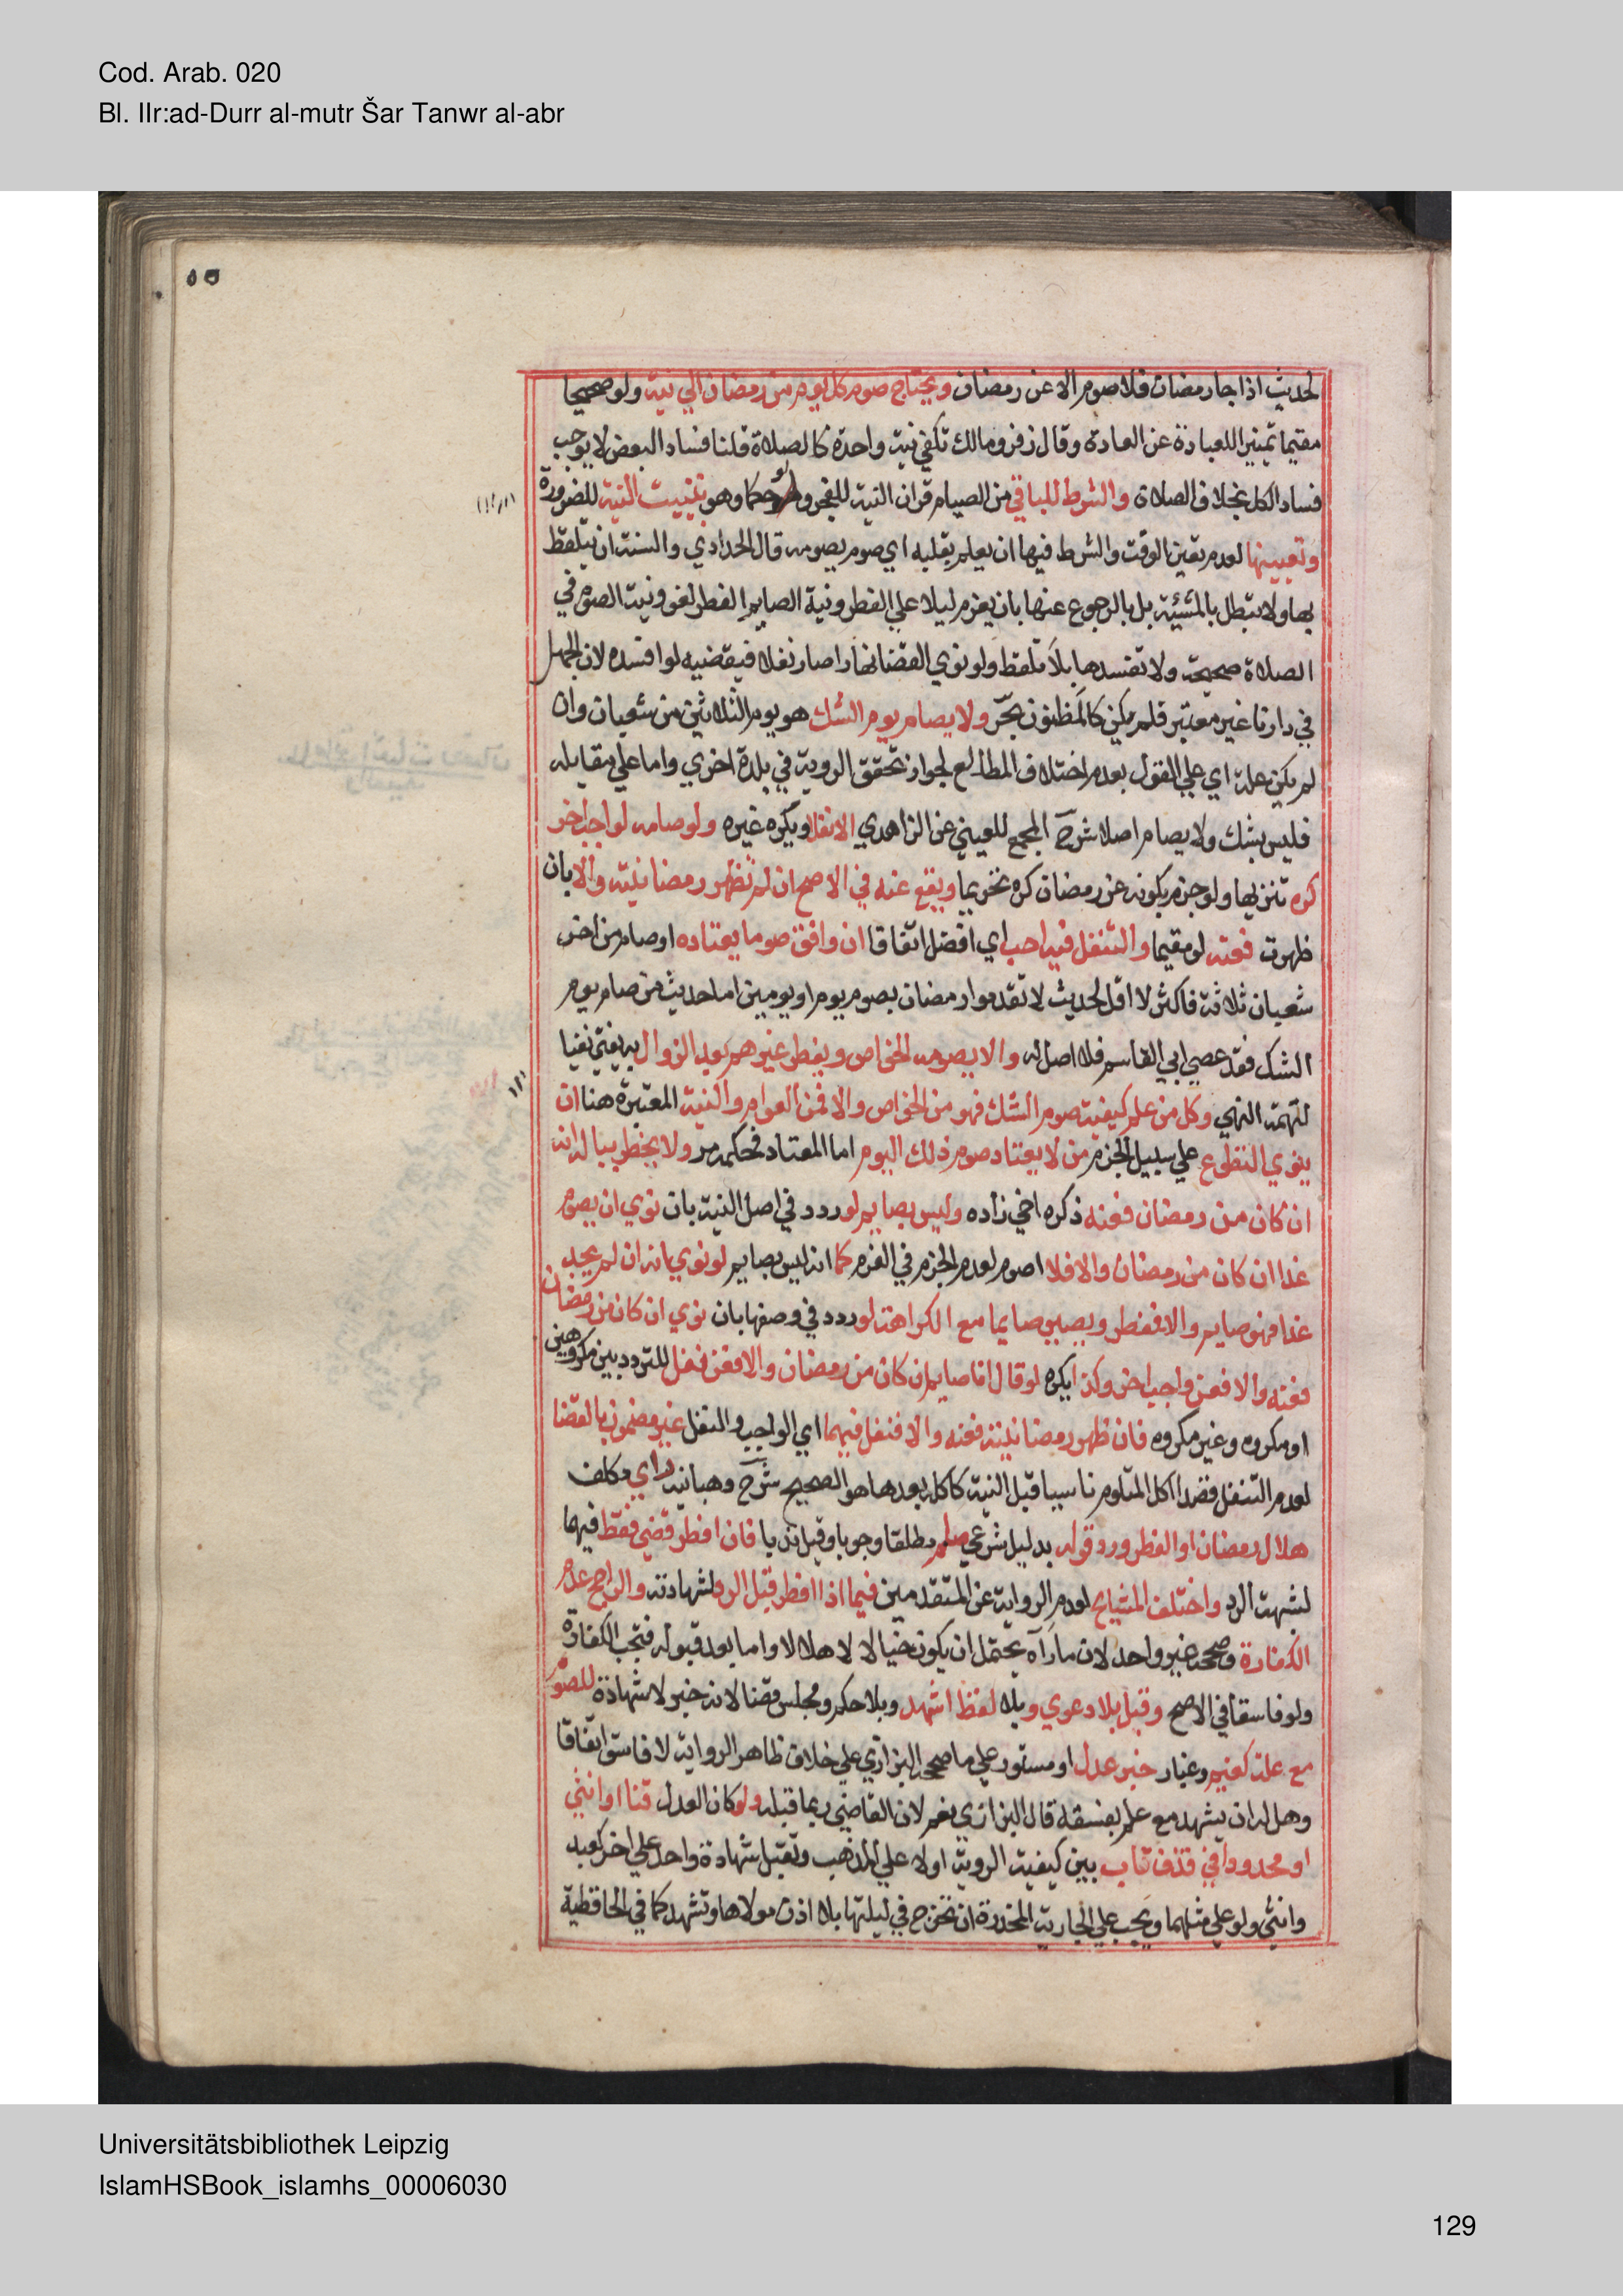 Cod. Arab. 020
Bl. IIr:ad-Durr al-mutr Šar Tanwr al-abr
٥٥
لحديث اذا جا رمضان فلا صوم الا عن رمضان ويحتاج صوم كل يوم من رمضان الي نية ولو صحيحا
مقيما تمييزا للعبادة عن العادة وقال زفر ومالك تكفي نية واحدة كالصلاة قلنا فساد البعض لا يوجب
فساد الكل بخلاف الصلاة والشرط للباقي من الصيام قران النية للفجر ولو حكما وهو تبييت النية للضرورة
وتعيينها لعدم تعين الوقت والشرط فيها ان يعلم بقلبه اي صوم يصومه قال الحدادي والسنة ان يتلفظ
بها ولا تبطل بالمشيئة بل بالرجوع عنها بان يعزم ليلا علي الفطر ونية الصايم الفطر لغو ونية الصوم في
الصلاة صحيحة ولا تفسدها بلا تلفظ ولو نوي القضا نهارا صار نفلا فيقضيه لو افسده لان الجهل
في دارنا غير معتبر فلم يكن كالمظنون بحر ولا يصام يوم الشك هو يوم الثلاثين من شعبان وان
لم يكن علة اي علي القول بعدم اختلاف المطالع لجواز تحقق الروية في بلدة اخري واما علي مقابله
فليس بشك ولا يصام اصلا شرح المجمع للعيني عن الزاهدي الا نفلا ويكره غيره ولو صامه لواجب اخر
كره تنزيها ولو جزم بكونه عن رمضان كره تحريما ويقع عنه في الاصح ان لم تظهر رمضانيته والا بان
ظهرت فعنه لو مقيما والتنفل فيه احب اي افضل اتفاقا ان وافق صوما يعتاده او صام من اخر
شعبان ثلاثة فاكثر لا اقل لحديث لا تقدموا رمضان بصوم يوم او يومين اما حديث من صام يوم
الشك فقد عصي ابي القاسم فلا اصل له والا يصومه الخواص ويفطر غيرهم بعد الزوال به يفتي نفيا
لتهمة النهي وكل من علم كيفية صوم الشك فهو من الخواص والا فمن العوام والنية المعتبرة هنا ان
ينوي التطوع علي سبيل الجزم من لا يعتاد صوم ذلك اليوم اما المعتاد فحكمه مر ولا يخطر بباله انه
ان كان من رمضان فعنه ذكره اخي زاده وليس بصايم لو ردد في اصل النية بان نوي ان يصوم
غدا ان كان من رمضان والا فلا اصوم لعدم الجزم في العزم كما انه ليس بصايم لو نوي انه ان لم يجد
غدا فهو صايم والا فمفطر ويصير صايما مع الكراهة لو ردد في وصفها بان نوي ان كان من رمضان
فعنه والا فعن واجب اخر وكذا يكره لو قال انا صايم ان كان من رمضان والا فعن نفل للتردد بين مكروهين
او مكروه وغير مكروه فان ظهر رمضانيته فعنه والا فنفل فيهما اي الواجب والنفل غير مضمون بالقضا
لعدم التنفل قصدا اكل المتلوم ناسيا قبل النية كاكله بعدها هو الصحيح شرح وهبانية راي مكلف
هلال رمضان او الفطر ورد قوله بدليل شرعي صام مطلقا وجوبا وقيل ندبا فان افطر قضي فقط فيهما
لشبهة الرد واختلف المشايخ لعدم الرواية عن المتقدمين فيما اذا افطر قبل الرد لشهادته والراجح عدم
الكفارة وصححه غير واحد لان ما رآه يحتمل ان يكون خيالا لا هلالا واما بعد قبوله فتجب الكفارة
ولو فاسقا في الاصح وقبل بلا دعوي وبلا لفظ اشهد وبلا حكم ومجلس قضا لانه خبر لا شهادة للصوم
مع علة كغيم وغبار خبر عدل او مستور علي ما صححه البزازي علي خلاف ظاهر الرواية لا فاسق اتفاقا
وهل له ان يشهد مع علمه بفسقه قال البزازي نعم لان القاضي ربما قبله ولو كان العدل قنا او انثي
او محدودا في قذف تاب بين كيفية الروية اولا علي المذهب وتقبل شهادة واحد علي اخر كعبد
وانثي ولو علي مثلهما ويجب علي الجارية المخدرة ان تخرج في ليلتها بلا اذن مولاها وتشهد كما في الحافظية
Universitätsbibliothek Leipzig
IslamHSBook_islamhs_00006030
129